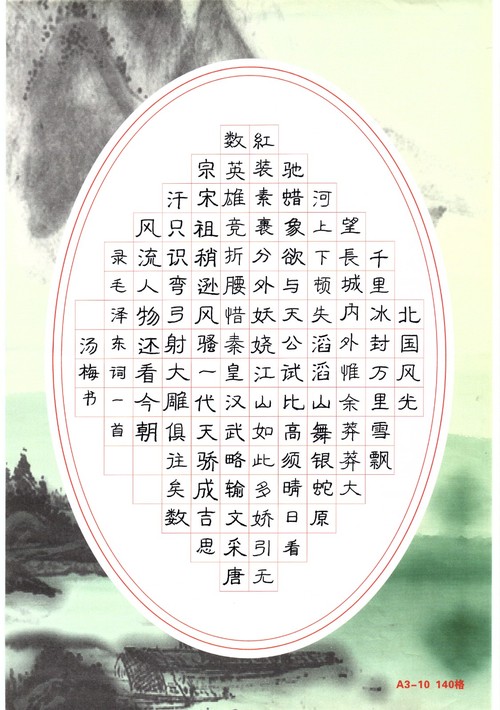 北国风光
千里冰封万里雪飘
望長城内外惟余莽莽大
河上下顿失滔滔山舞银蛇原
驰蜡象欲与天公试比高须晴日看
紅装素裹分外妖娆江山如此多娇引无
数英雄竞折腰惜秦皇汉武略输文采唐
宗宋祖稍逊风骚一代天骄成吉思
汗只识弯弓射大雕俱往矣数
风流人物还看今朝
录毛泽东词一首
汤梅书
A3-10 140格